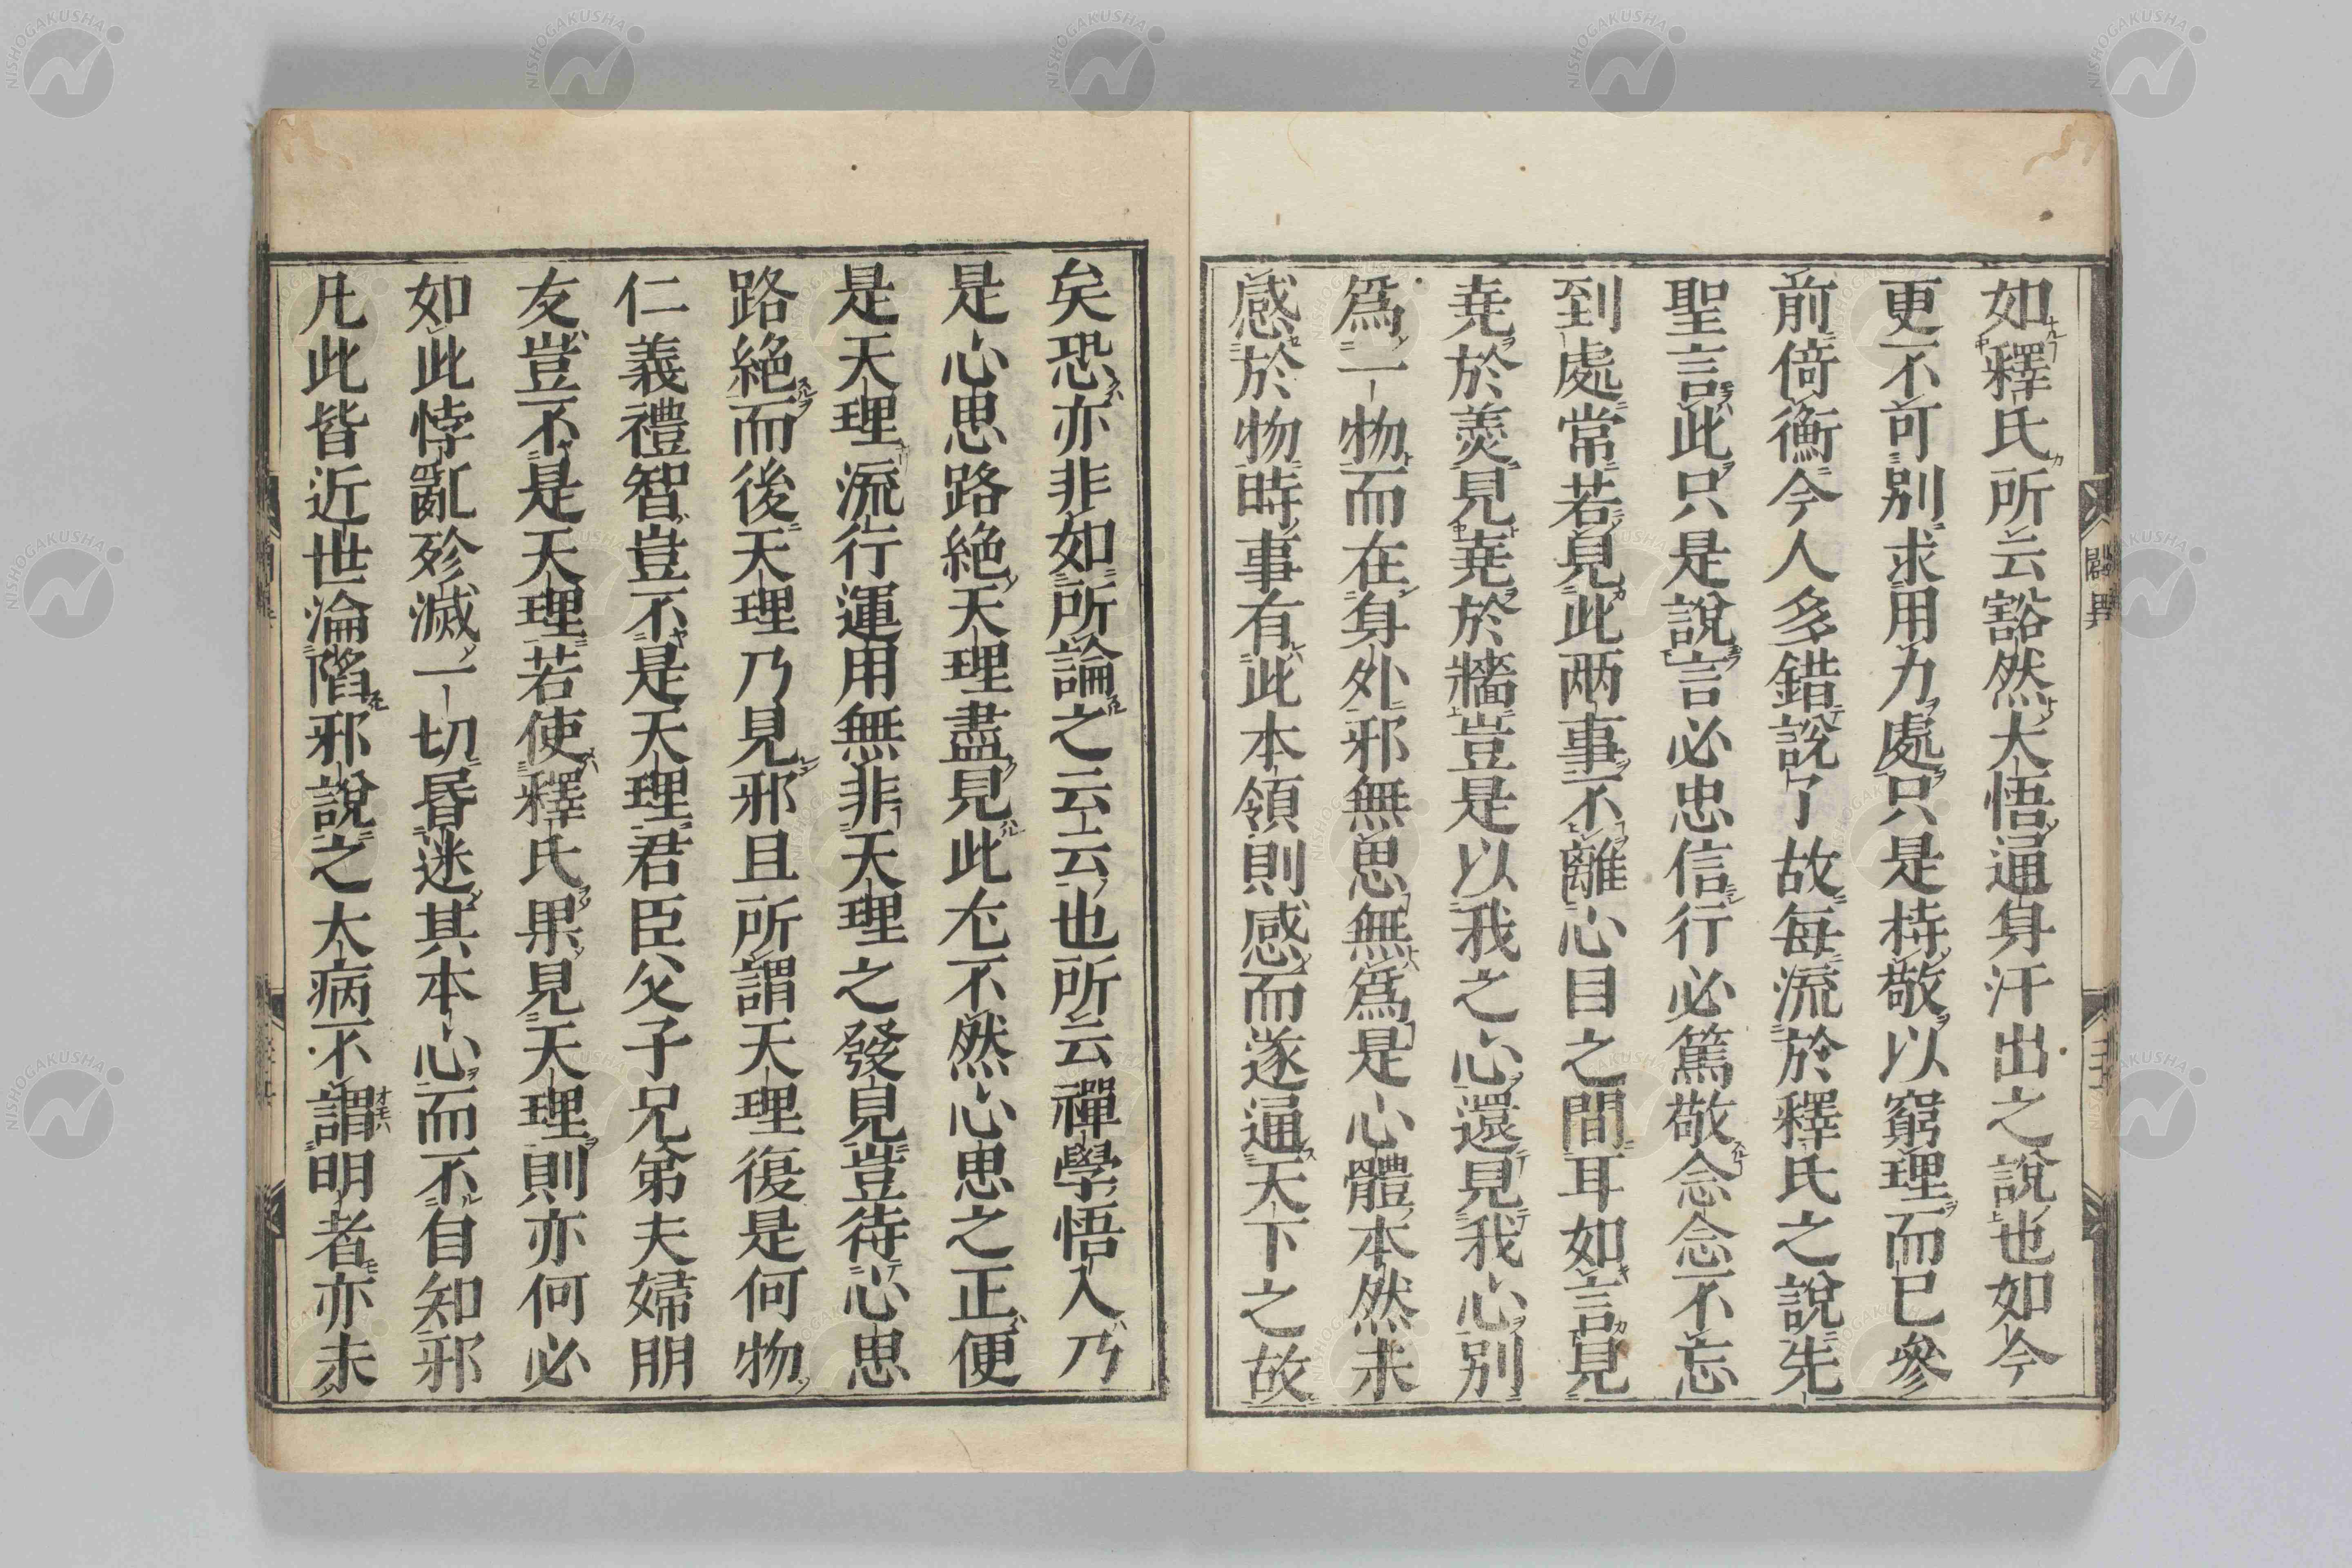 如釋氏所云豁然大悟逼身汗出之說也如今
更不可別求用力處只是持敬以窮理而已參
前倚衡今人多錯說了故每流於釋氏之說先
聖言此只是說言必忠信行必篤敬念念不忘
到處常若見此兩事不離心目之間耳如言見
堯於羹見堯於牆豈是以我之心還見我心別
爲一物而在身外邪無思無爲是心體本然未
感於物時事有此本領則感而遂逼天下之故
矣恐亦非如所論之云云也所云禪學悟入乃
是心思路絶天理盡見此尤不然心思之正便
是天理流行運用無非天理之發見豈待心思
路絶而後天理乃見邪且所謂天理復是何物
仁義禮智豈不是天理君臣父子兄弟夫婦朋
友豈不是天理若使釋氏果見天理則亦何必
如此悖亂殄滅一切昏迷其本心而不自知邪
凡此皆近世淪陷邪說之大病不謂明者亦未
闢異
NISHOGAKUSHA